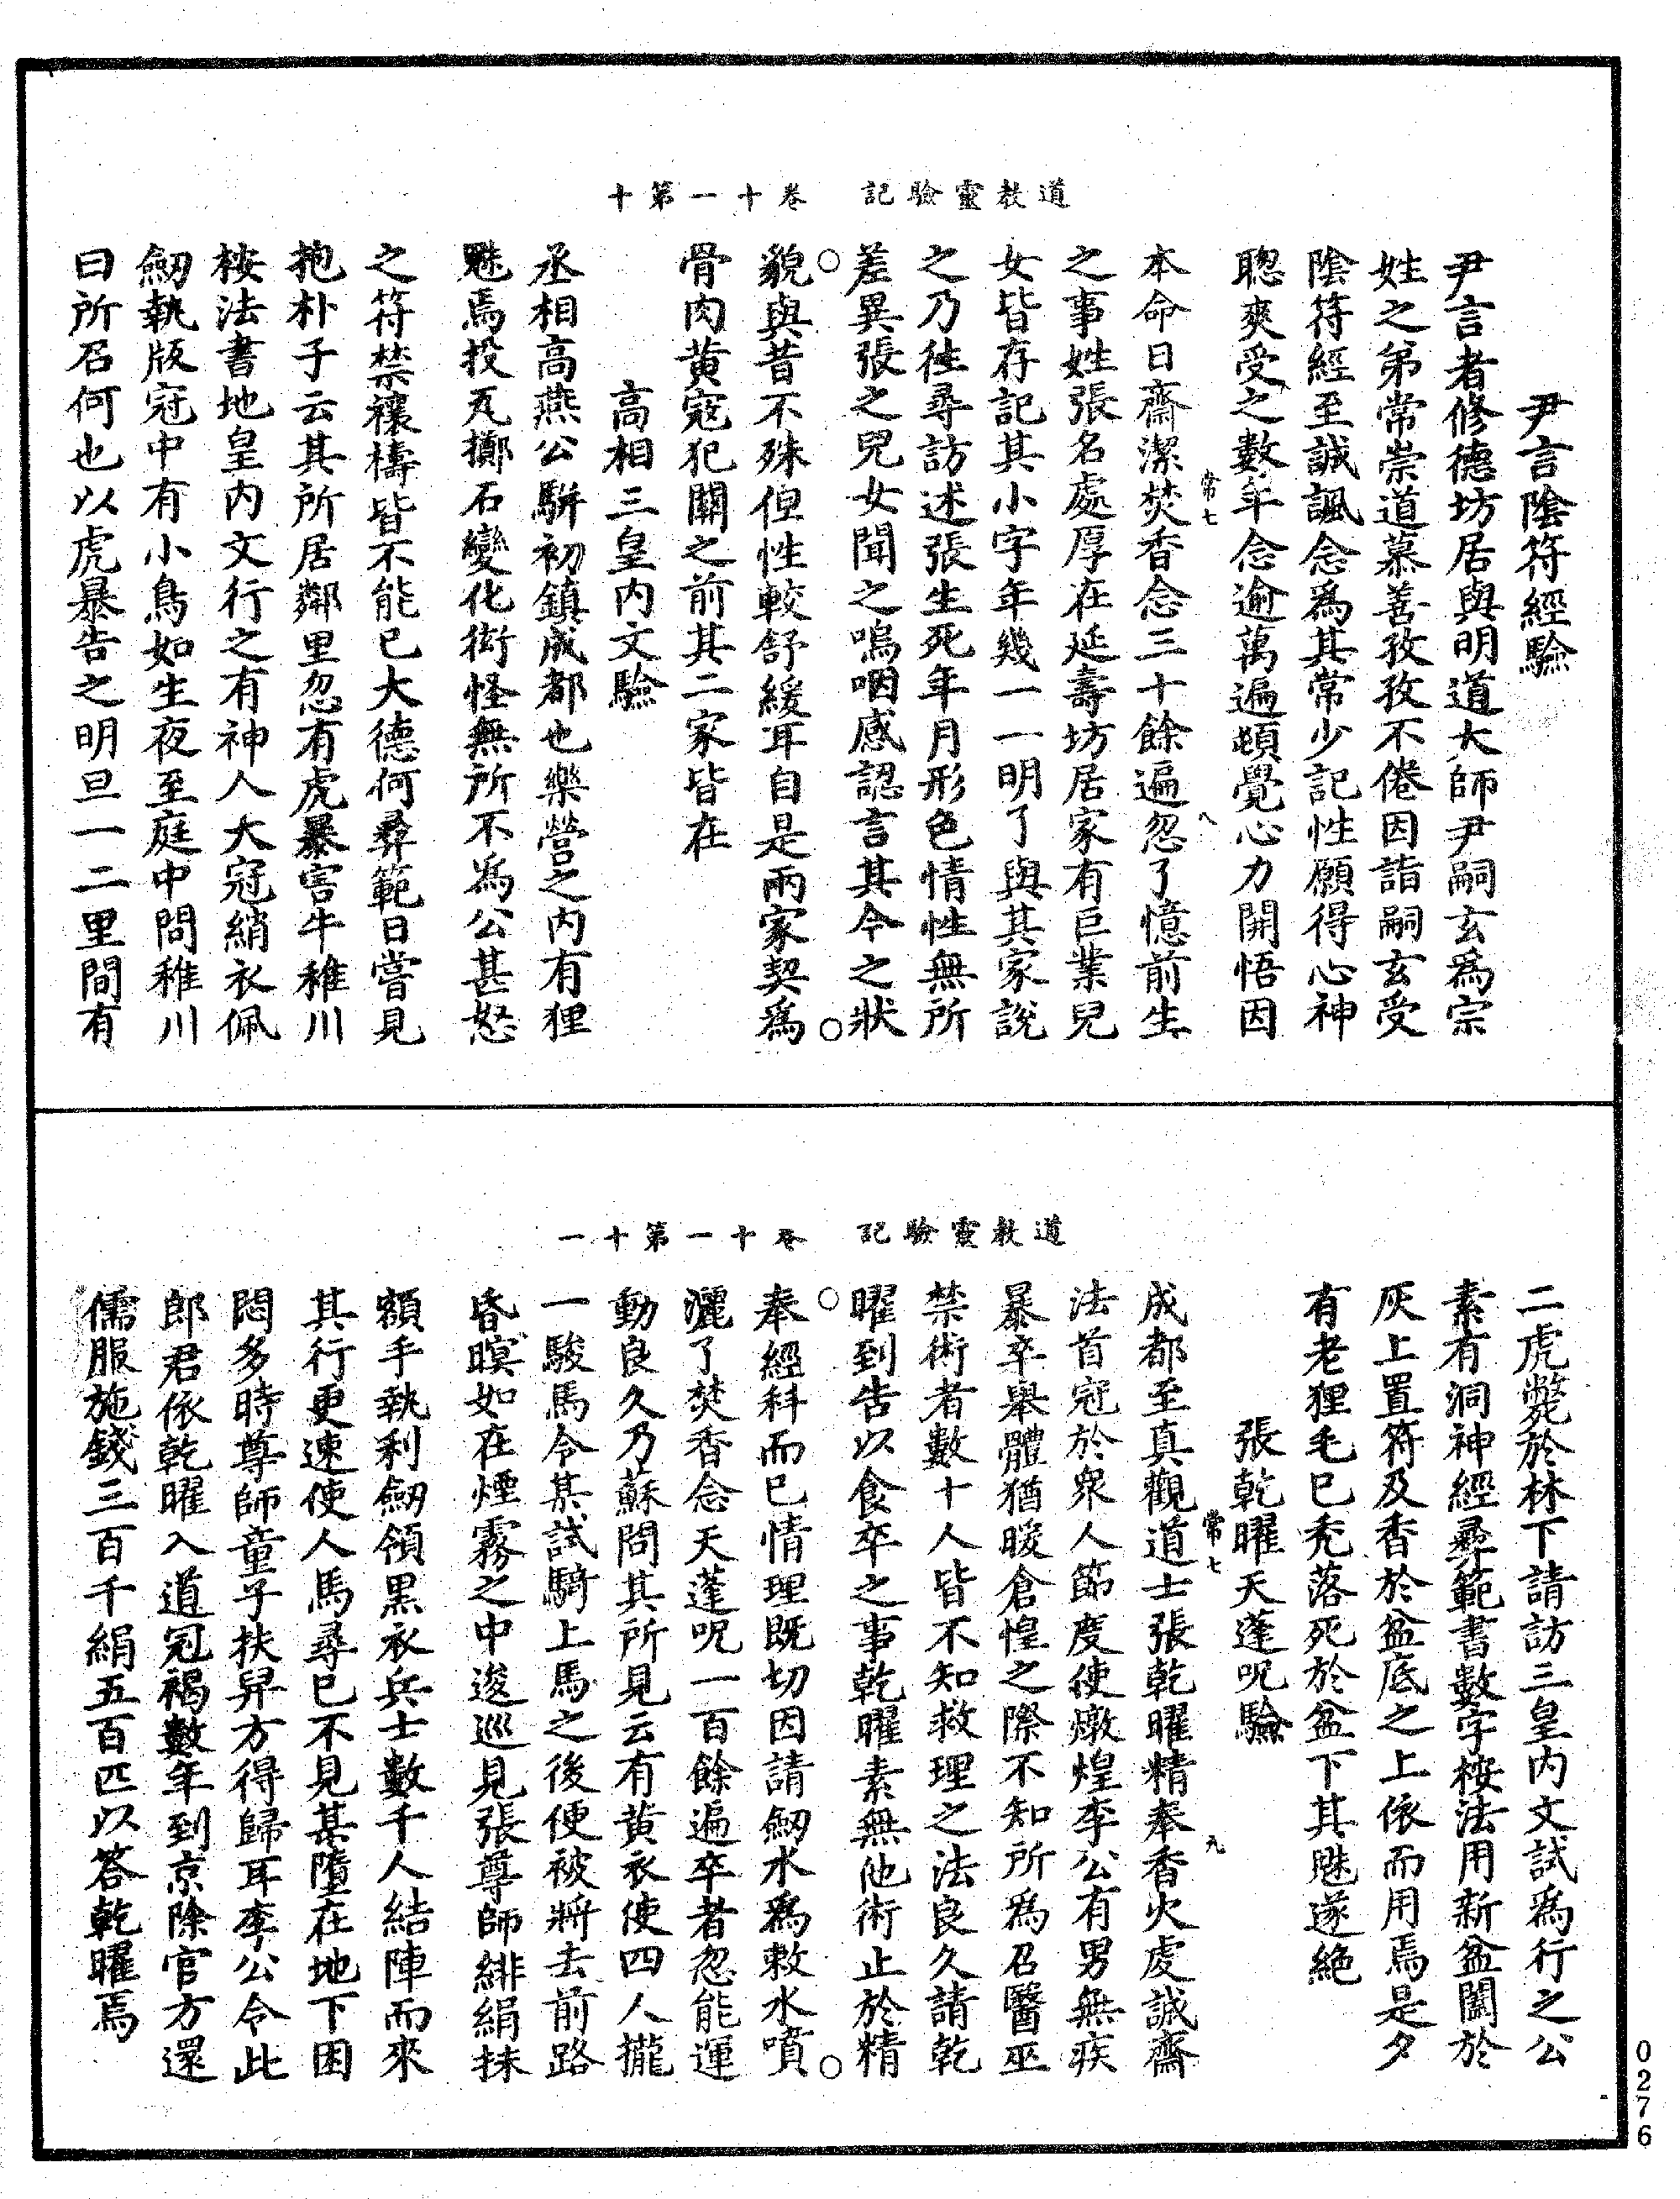 道教靈驗記　卷十一第十
尹言陰符經驗
尹言者修德坊居與明道大師尹嗣玄爲宗
姓之弟常崇道慕善孜孜不倦因詣嗣玄受
陰符經至誠諷念爲其常少記性願得心神
聰爽受之數年念逾萬遍頓覺心力開悟因
常七
八
本命日齋潔焚香念三十餘遍忽了憶前生
之事姓張名處厚在延壽坊居家有巨業兒
女皆存記其小字年幾一一明了與其家說
之乃徃尋訪述張生死年月形色情性無所
差異張之兒女聞之嗚咽感認言其今之狀
貌與昔不殊但性較舒緩耳自是兩家契爲
骨肉黃寇犯關之前其二家皆在
高相三皇内文驗
丞相高燕公駢初鎮成都也樂營之内有狸
魅焉投瓦擲石變化衒怪無所不爲公甚怒
之符禁禳檮皆不能已大德何彝範日嘗見
抱朴子云其所居鄰里忽有虎暴害牛稚川
桉法書地皇内文行之有神人大冠綃衣佩
劒執版冠中有小鳥如生夜至庭中問稚川
曰所召何也以虎暴告之明旦一二里間有
道教靈驗記　卷十一第十一
二虎斃於林下請訪三皇内文試爲行之公
素有洞神經彝範書數字桉法用新盆闔於
灰上置符及香於盆底之上依而用焉是夕
有老狸毛已禿落死於盆下其魅遂絶
張乾曜天蓬呪驗
常七
九
成都至真觀道士張乾曜精奉香火虔誠齋
法首冠於衆人節度使燉煌李公有男無疾
暴卒舉體猶暖倉惶之際不知所爲召醫巫
禁術者數十人皆不知救理之法良久請乾
曜到告以食卒之事乾曜素無他術止於精
奉經科而已情理既切因請劒水爲敕水噴
灑了焚香念天蓬呪一百餘遍卒者忽能運
動良久乃蘇問其所見云有黃衣使四人攏
一駿馬令某試騎上馬之後便被將去前路
昏暝如在煙霧之中逡巡見張尊師緋絹抹
額手執利劒領黑衣兵士數千人結陣而來
其行更速使人馬尋已不見某墮在地下困
悶多時尊師童子扶舁方得歸耳李公令此
郎君依乾曜入道冠褐數年到京除官方還
儒服施錢三百千絹五百匹以答乾曜焉
0276